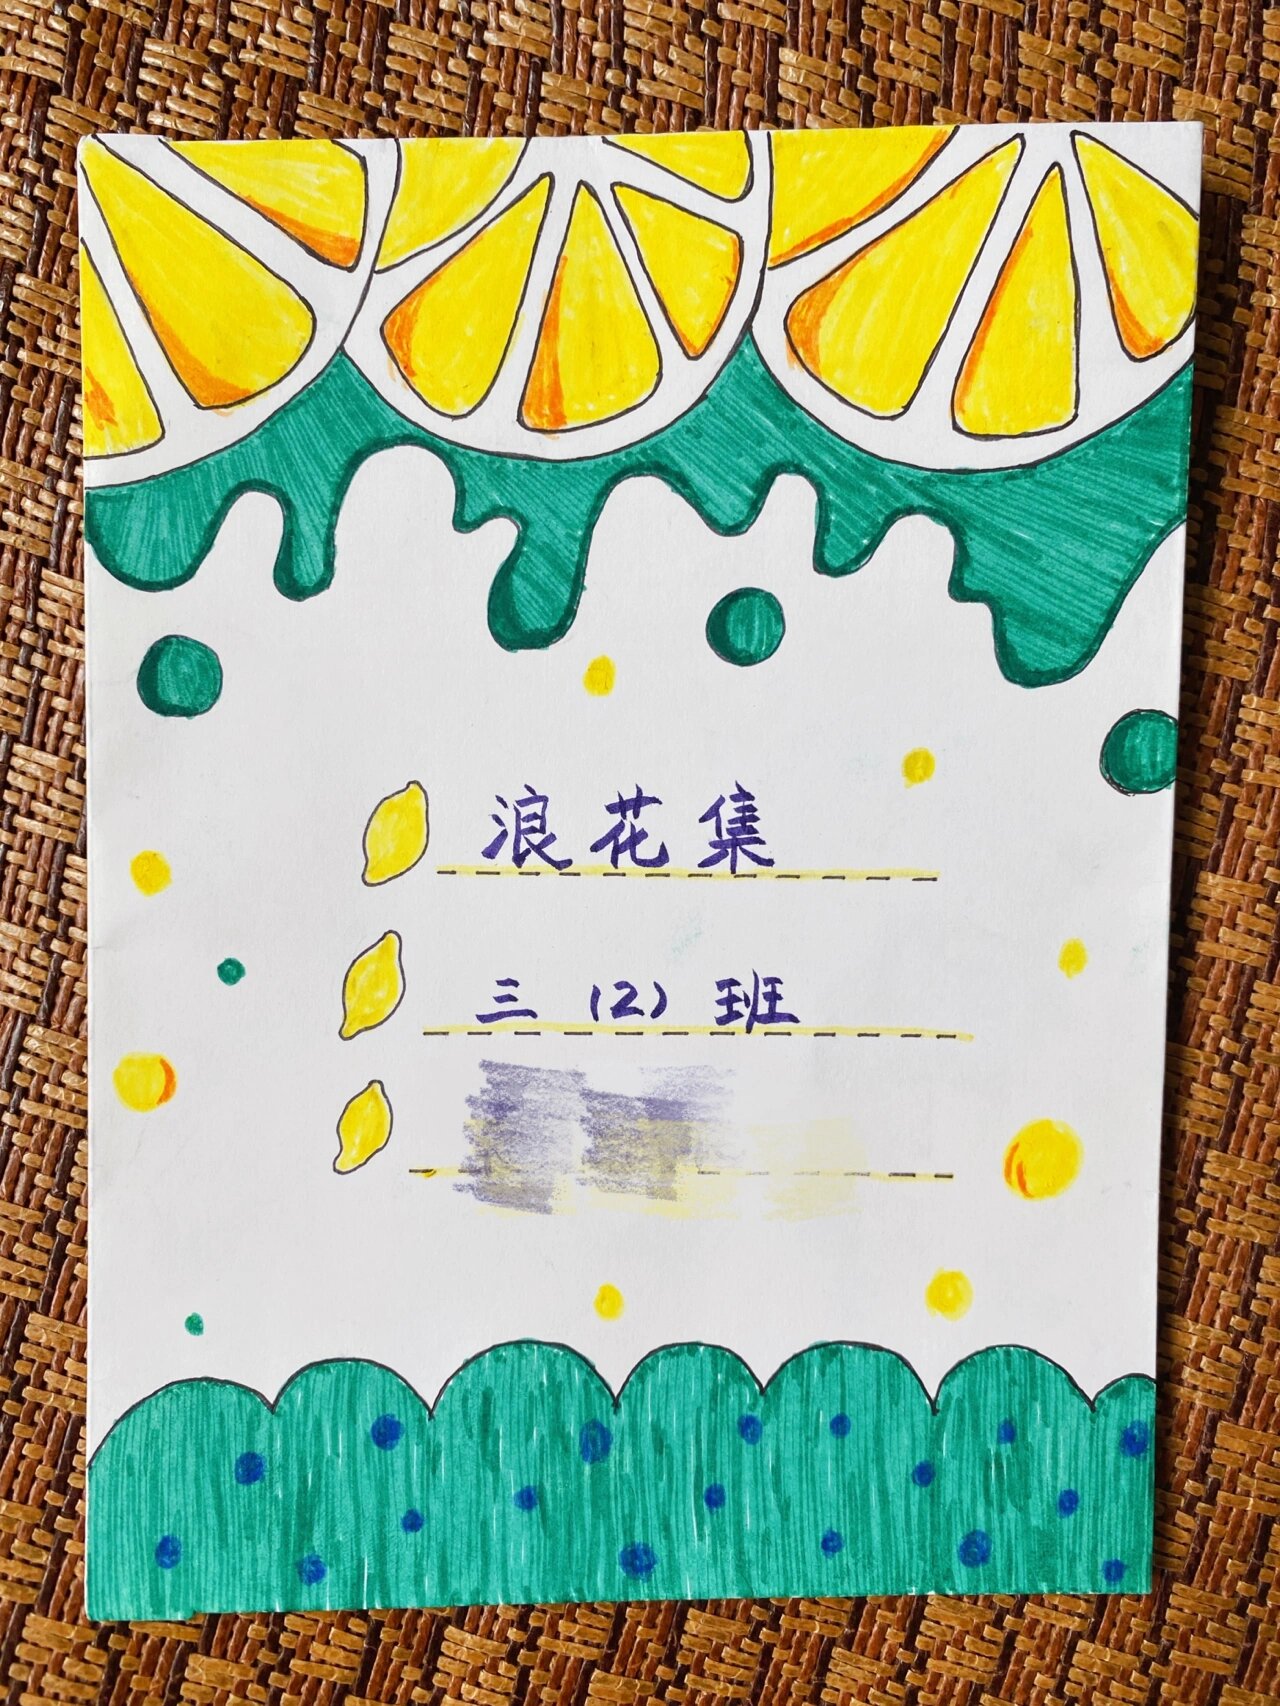 浪花集
三（2）班